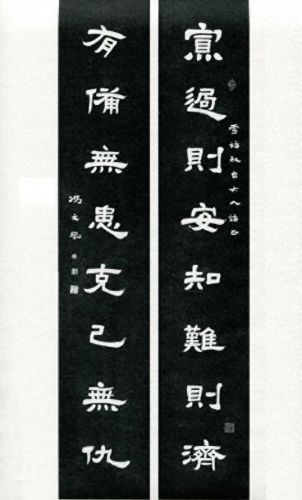 寡過則安知難則濟
叔台大人正
有備無患克己無仇
馮文鳳